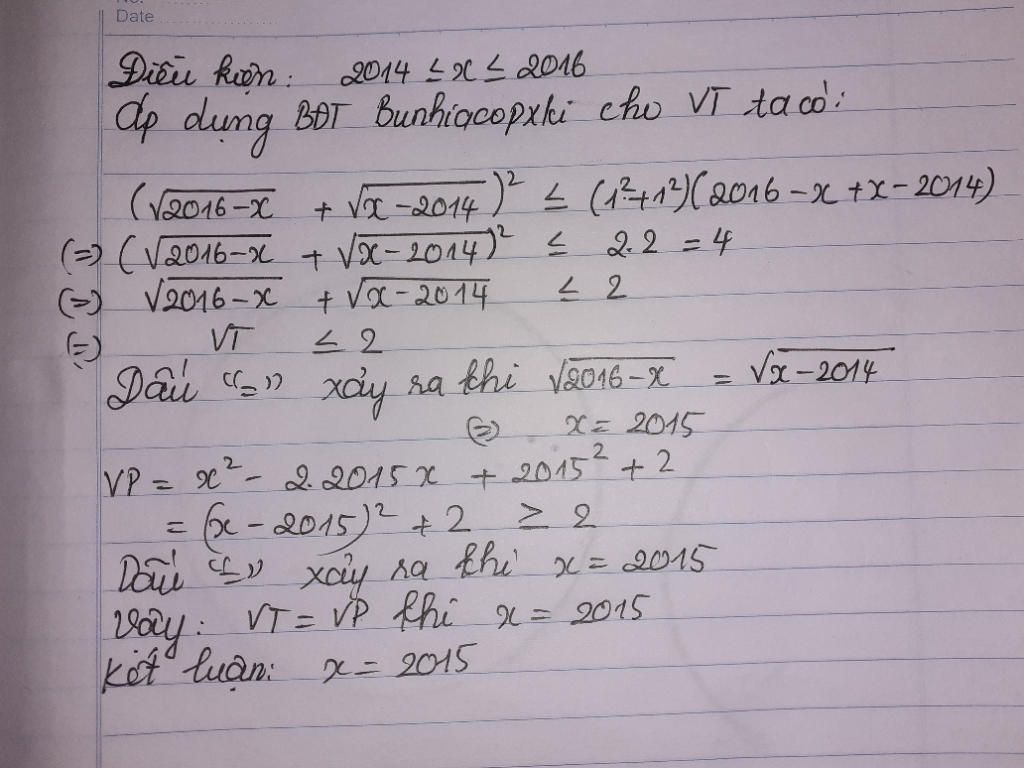 Date
Điều kiện: 2014 ≤ x ≤ 2016
Áp dụng BĐT Bunhiacopxki cho VT ta có:
(√2016-x + √x-2014)² ≤ (1²+1²)(2016-x+x-2014)
(=) (√2016-x + √x-2014)² ≤ 2.2 = 4
(=) √2016-x + √x-2014 ≤ 2
(=) VT ≤ 2
Dấu "=" xảy ra khi √2016-x = √x-2014
(=) x = 2015
VP = x² - 2.2015x + 2015² + 2
= (x-2015)² + 2 ≥ 2
Dấu "=" xảy ra khi x = 2015
Vậy: VT = VP khi x = 2015
Kết luận: x = 2015